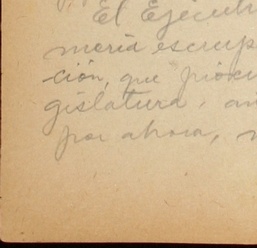 El Ejecuti
meria escrup
ción, que procu
gislatura, an
por ahora,